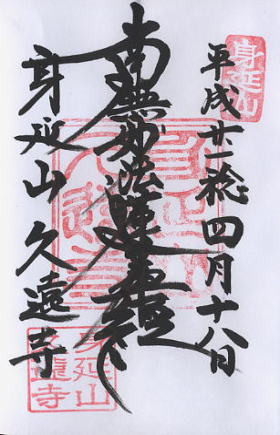 身延山
平成廿一稔四月十八日
南無妙法蓮華経
身延山久遠寺
身延山
久遠寺